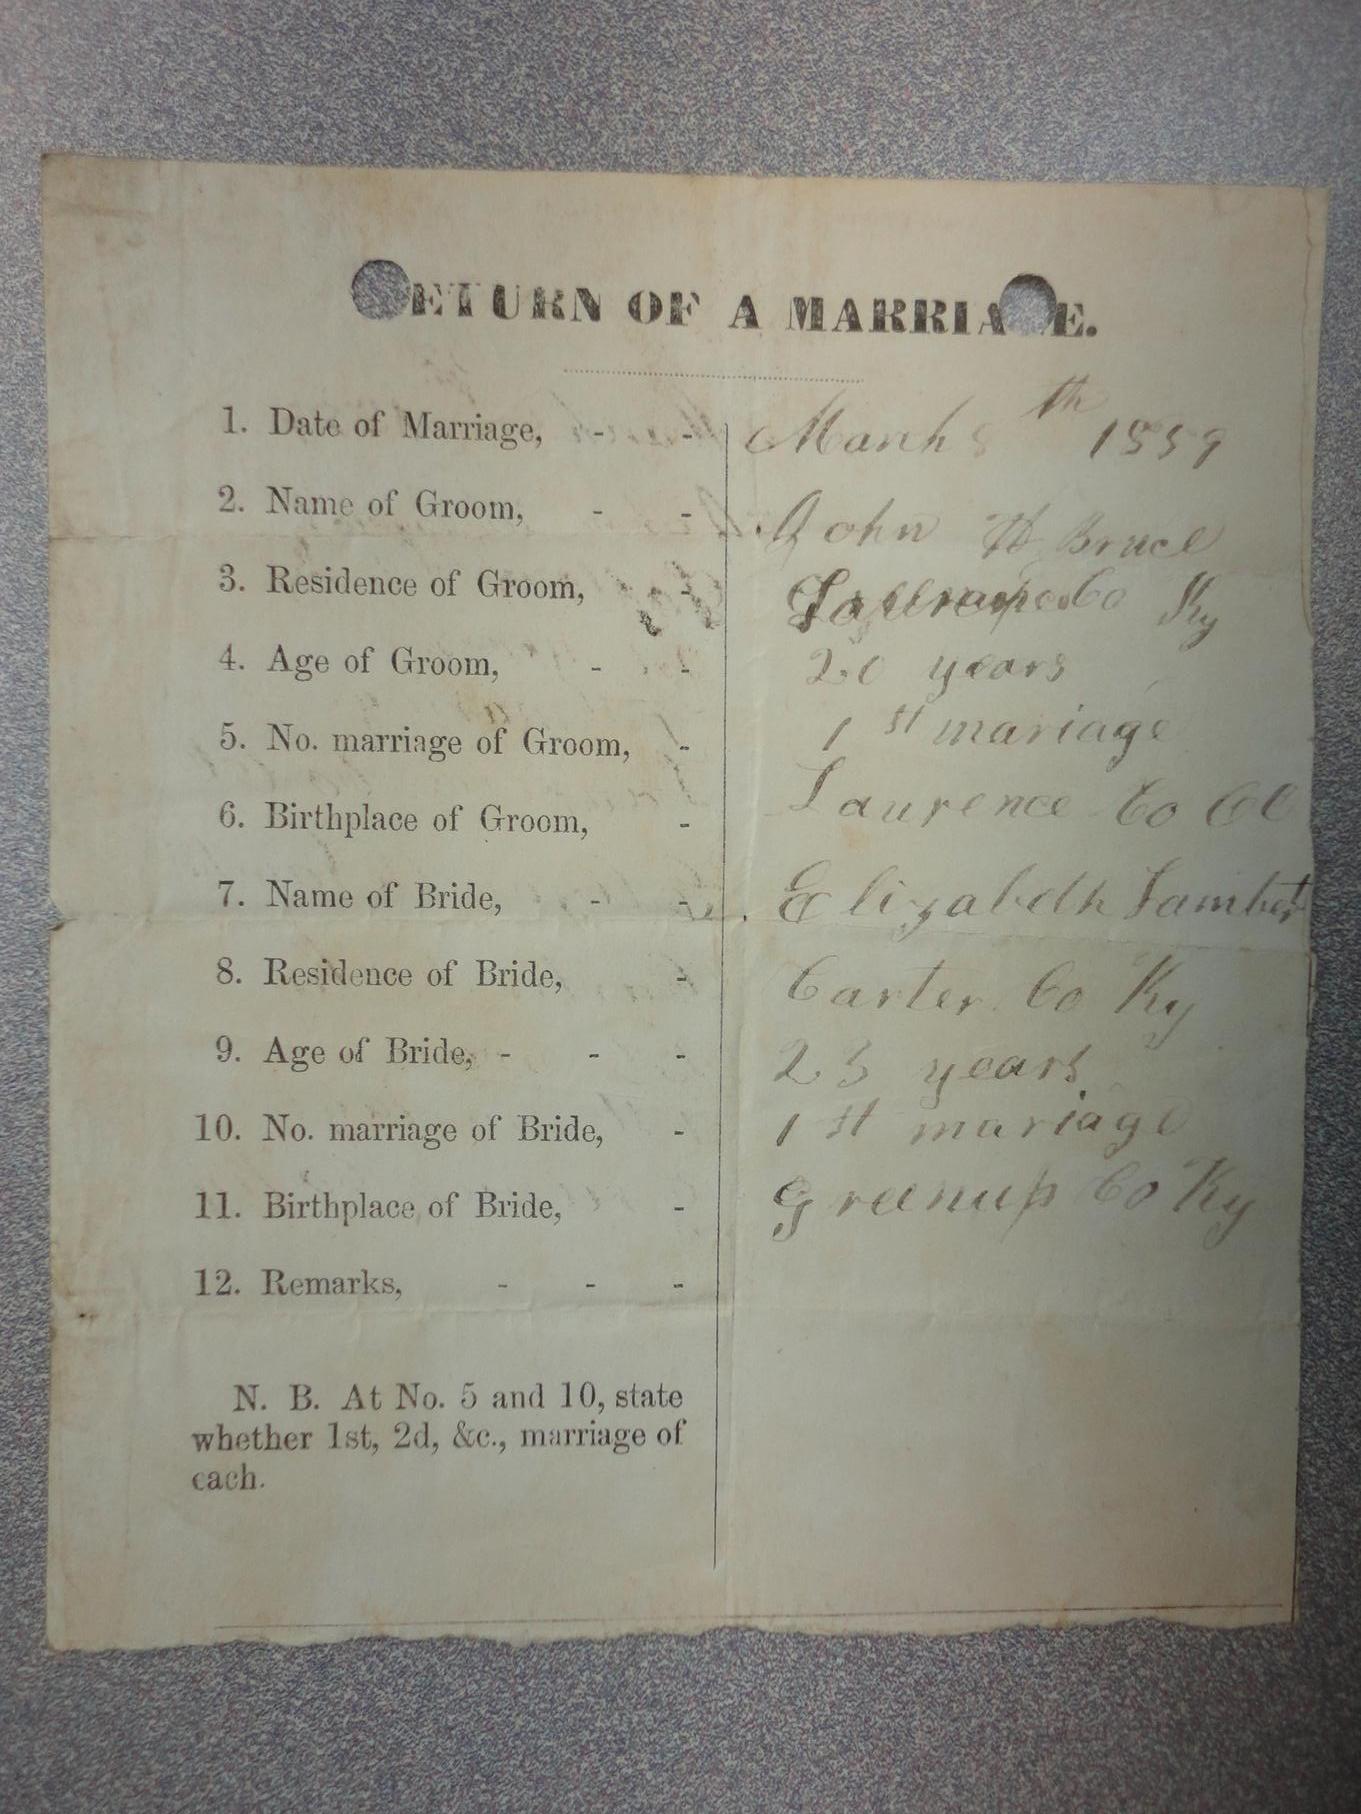 RETURN OF A MARRIAGE.
1. Date of Marriage, - - March 8th 1859
2. Name of Groom, - - John H Bruce
3. Residence of Groom, - Co Ky
4. Age of Groom, - - 20 years
5. No. marriage of Groom, - 1st mariage
6. Birthplace of Groom, - Laurence Co
7. Name of Bride, - - Elizabeth Lambert
8. Residence of Bride, - Carter Co Ky
9. Age of Bride, - - - 23 years
10. No. marriage of Bride, - 1st mariage
11. Birthplace of Bride, - Greenup Co Ky
12. Remarks, - - -
N. B. At No. 5 and 10, state
whether 1st, 2d, &c., marriage of
each.